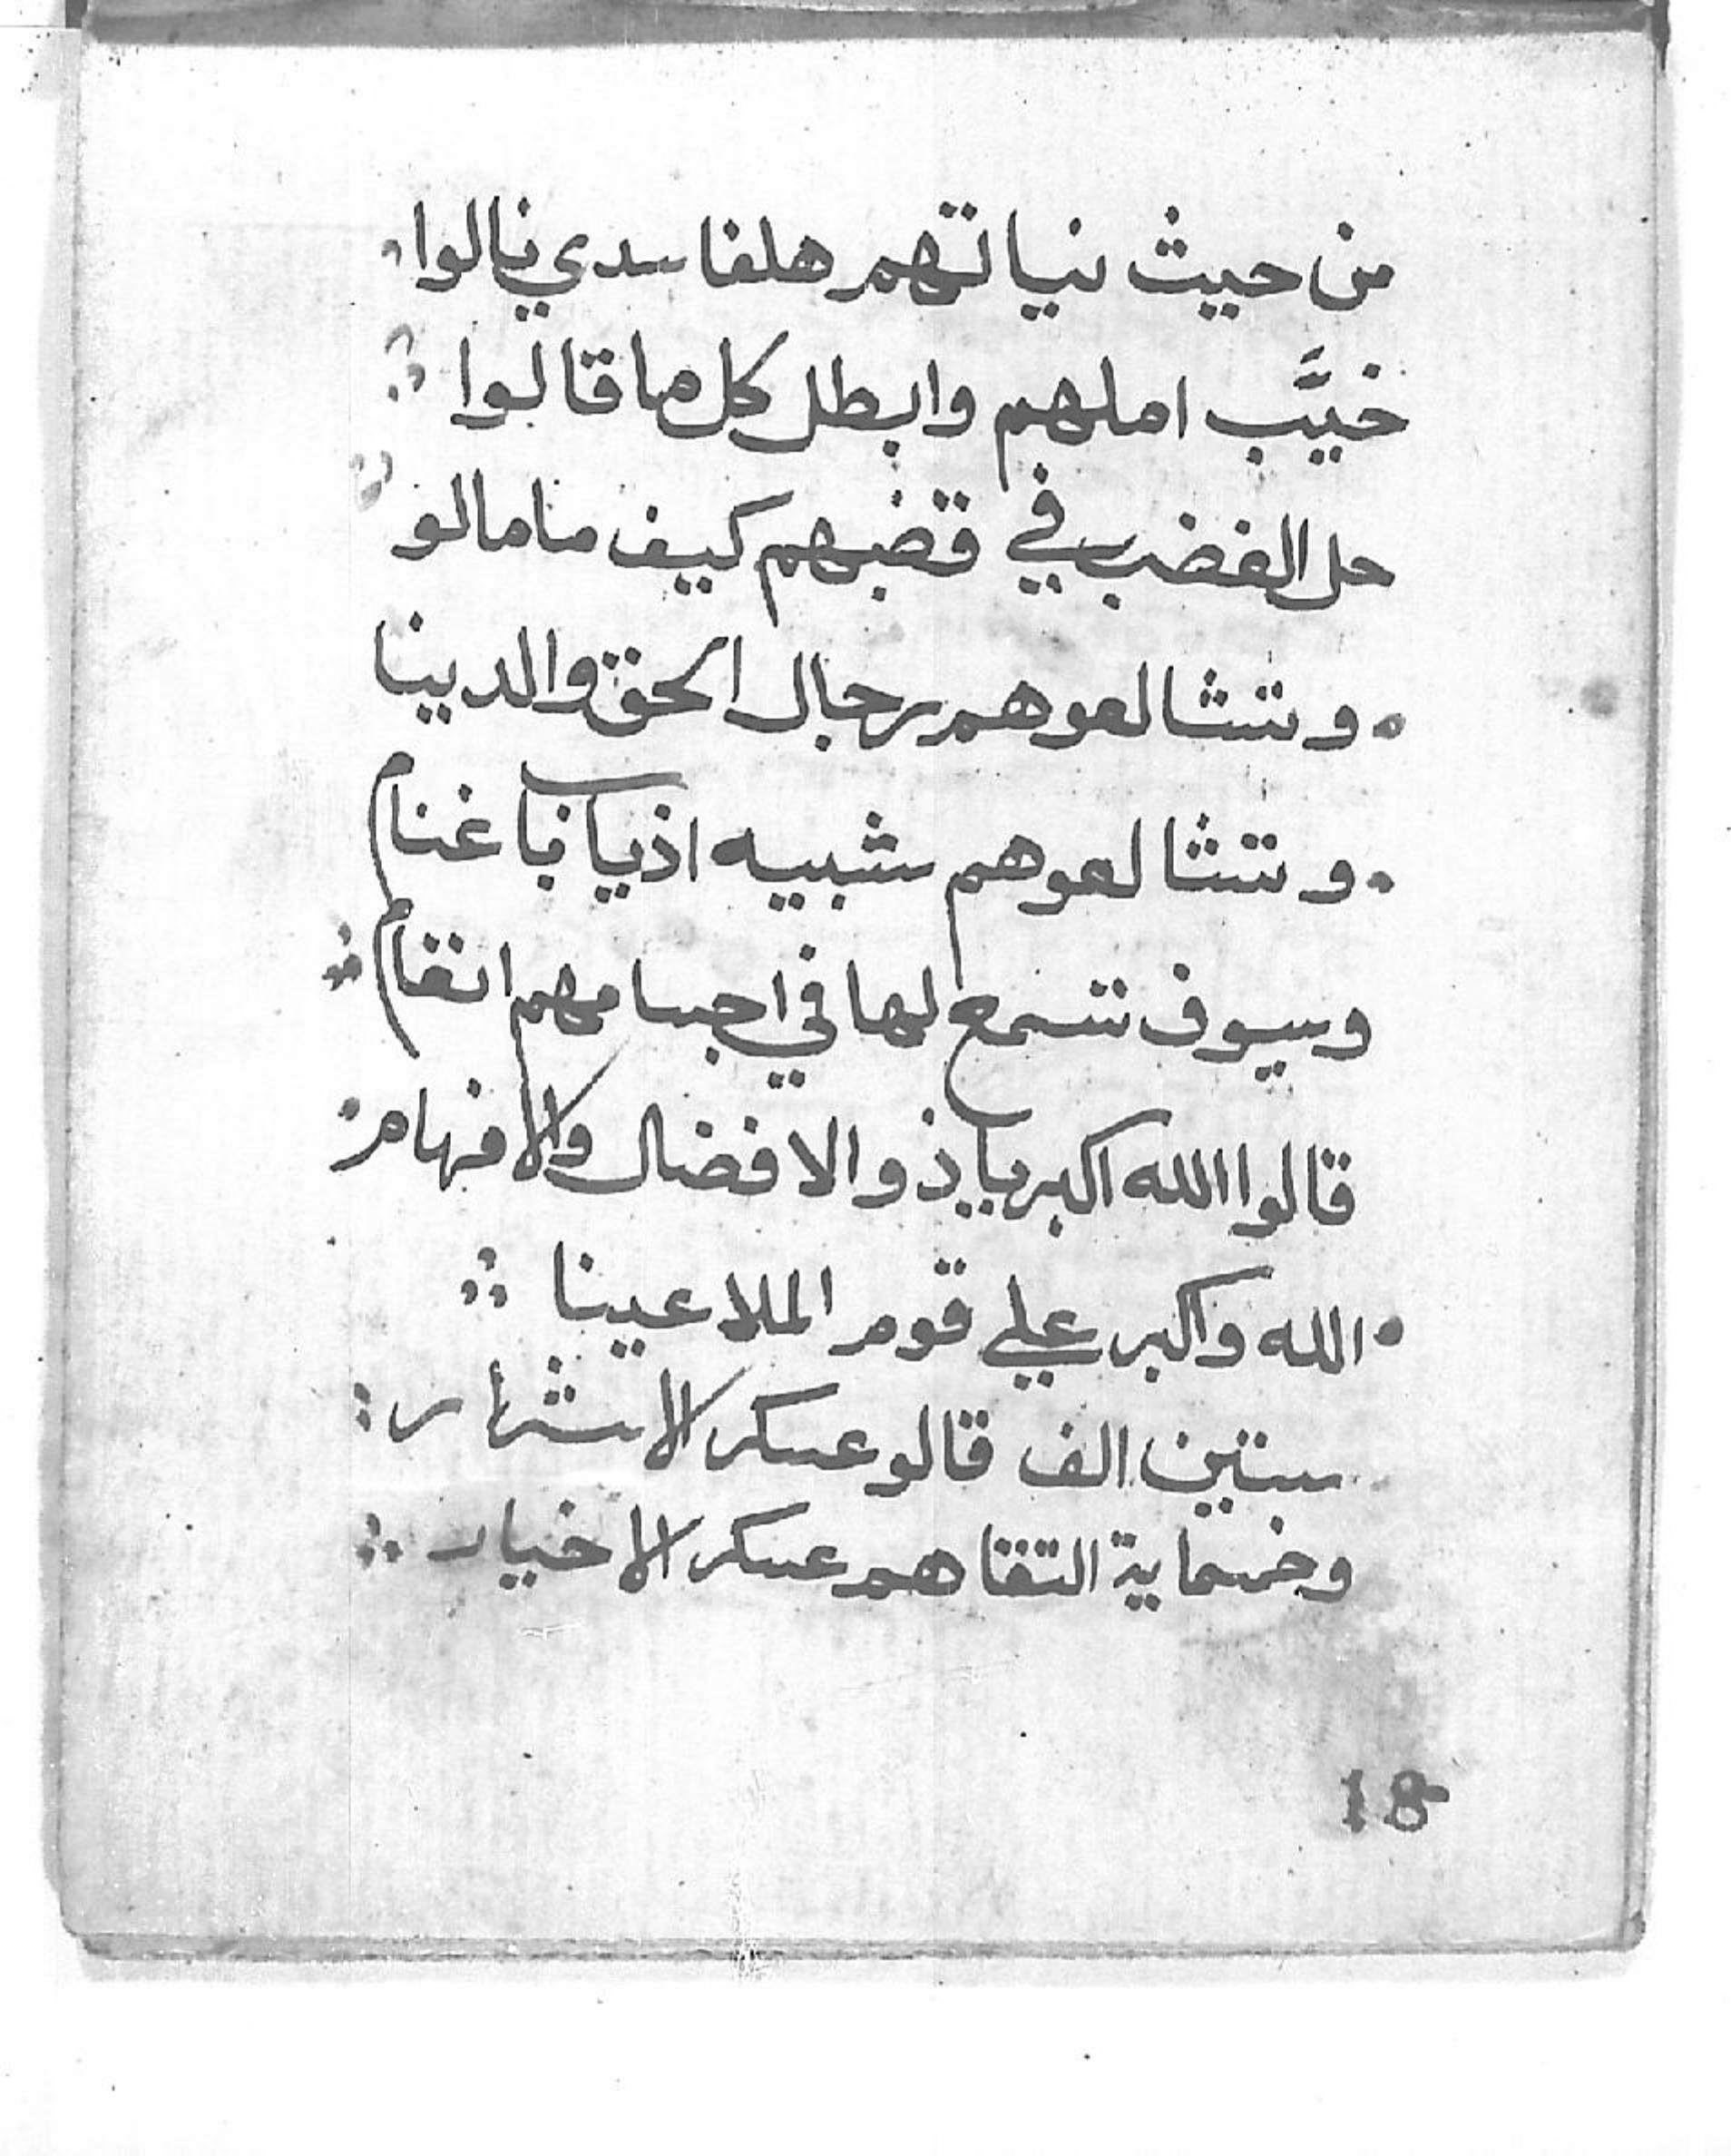 من حيث نياتهم هلفاسدي نالوا
خيَّب املهم وابطل كل ما قالوا
حل الغضب في قضبهم كيف ما مالو
وتشالعوهم رجال الحق والدينا
وتشالعوهم شبيه اذياب باغنام
وسوف تسمع لها في اجسامهم انغام
قالوا الله اكبر يا ذو الافضال والافهام
الله واكبر علي قوم الملاعينا
ستين الف قالو عسكر الاشرار
وخسماية التقاهم عسكر الاخيار
18